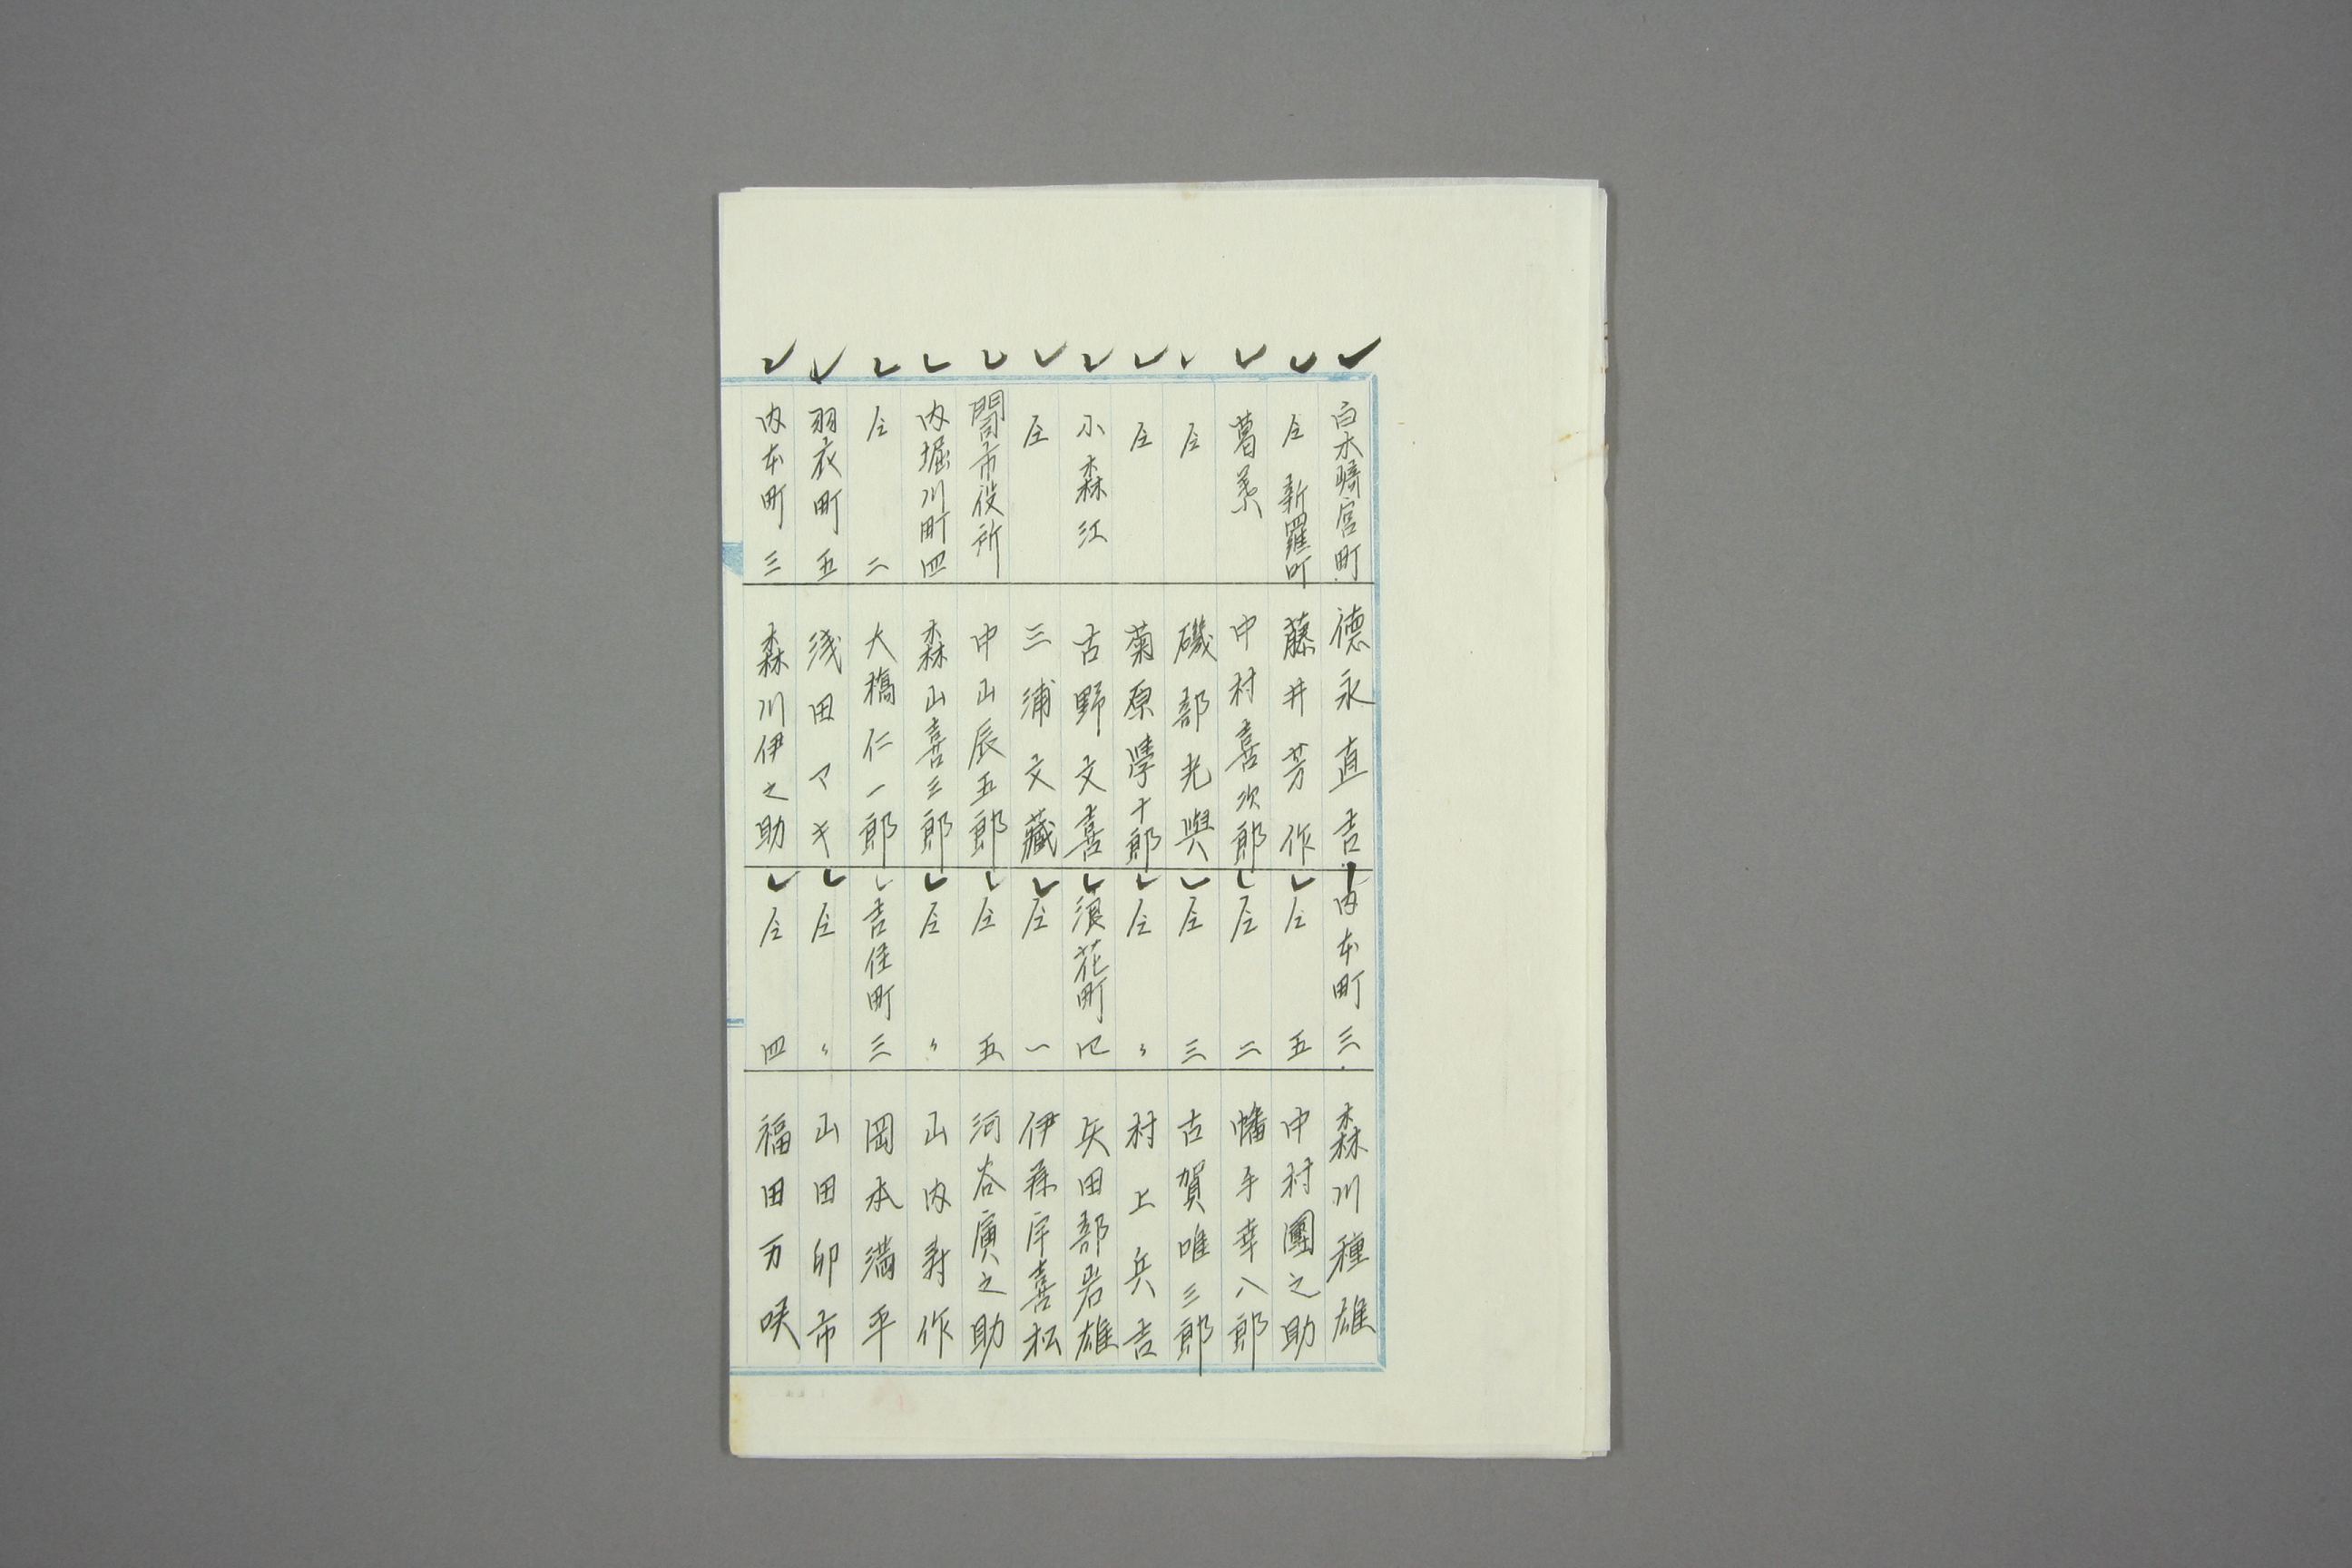 白木崎宮町 德永直吉
仝 新羅町 藤井芳作
葛葉 中村喜次郎
仝 磯部光與
仝 菊原學十郎
小森江 古野文喜
仝 三浦文藏
門司市役所 中山辰五郎
内堀川町四 森山喜三郎
仝 二 大橋仁一郎
羽衣町 五 浅田マキ
内本町 三 森川伊之助
内本町 三 森川種雄
仝 五 中村團之助
仝 二 幡手幸八郎
仝 三 古賀唯三郎
仝 〃 村上兵吉
浪花町 四 矢田部岩雄
仝 一 伊藤宇喜松
仝 五 河谷廣之助
仝 〃 山内寿作
吉住町 三 岡本満平
仝 〃 山田卯市
仝 四 福田万咲